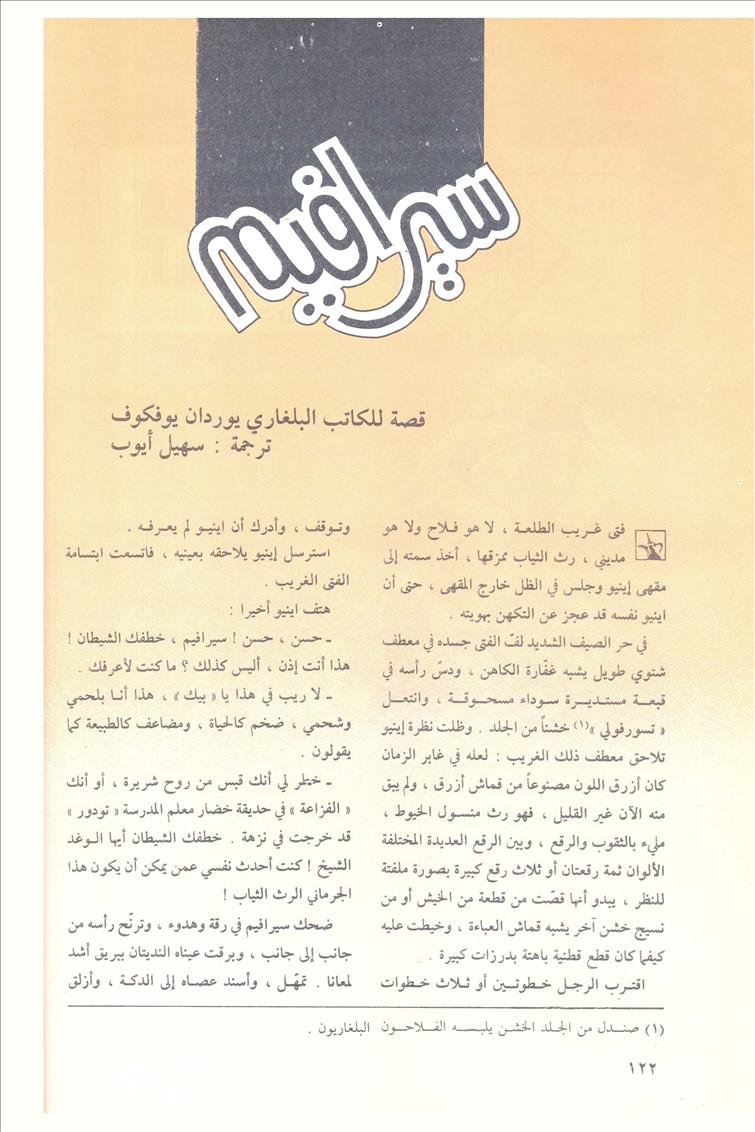 سيرافيم
قصة للكاتب البلغاري يوردان يوفكوف
ترجمة : سهيل أيوب
فتى غريب الطلعة ، لا هو فلاح ولا هو
مديني ، رث الثياب ممزقها ، أخذ سمته إلى
مقهى إينيو وجلس في الظل خارج المقهى ، حتى أن
اينيو نفسه قد عجز عن التكهن بهويته .
في حر الصيف الشديد لفّ الفتى جسده في معطف
شتوي طويل يشبه غفّارة الكاهن ، ودسّ رأسه في
قبعة مستديرة سوداء مسحوقة ، وانتعل
« تسورفولي »(١) خشناً من الجلد . وظلت نظرة إينيو
تلاحق معطف ذلك الغريب : لعله في غابر الزمان
كان أزرق اللون مصنوعاً من قماش أزرق ، ولم يبق
منه الآن غير القليل ، فهو رث منسول الخيوط ،
مليء بالثقوب والرقع ، وبين الرقع العديدة المختلفة
الألوان ثمة رقعتان أو ثلاث رقع كبيرة بصورة ملفتة
للنظر ، يبدو أنها قصّت من قطعة من الخيش أو من
نسيج خشن آخر يشبه قماش العباءة ، وخيطت عليه
كيفما كان قطع قطنية باهتة بدرزات كبيرة .
اقترب الرجل خطوتين أو ثلاث خطوات
وتوقف ، وأدرك أن اينيو لم يعرفه .
استرسل إينيو يلاحقه بعينيه ، فاتسعت ابتسامة
الفتى الغريب .
هتف اينيو أخيرا :
ـ حسن ، حسن ! سيرافيم ، خطفك الشيطان !
هذا أنت إذن ، أليس كذلك ؟ ما كنت لأعرفك .
ـ لا ريب في هذا يا « بيك » ، هذا أنا بلحمي
وشحمي ، ضخم كالحياة ، ومضاعف كالطبيعة كما
يقولون .
ـ خطر لي أنك قبس من روح شريرة ، أو أنك
« الفزاعة » في حديقة خضار معلم المدرسة « تودور »
قد خرجت في نزهة . خطفك الشيطان أيها الوغد
الشيخ ! كنت أحدث نفسي عمن يمكن أن يكون هذا
الجرماني الرث الثياب !
ضحك سيرافيم في رقة وهدوء ، وترنّح رأسه من
جانب إلى جانب ، وبرقت عيناه النديتان ببريق أشد
لمعانا . تمهّل ، وأسند عصاه إلى الدكة ، وأزلق
(١) صندل من الجلد الخشن يلبسه الفلاحون البلغاريون .
١٢٢